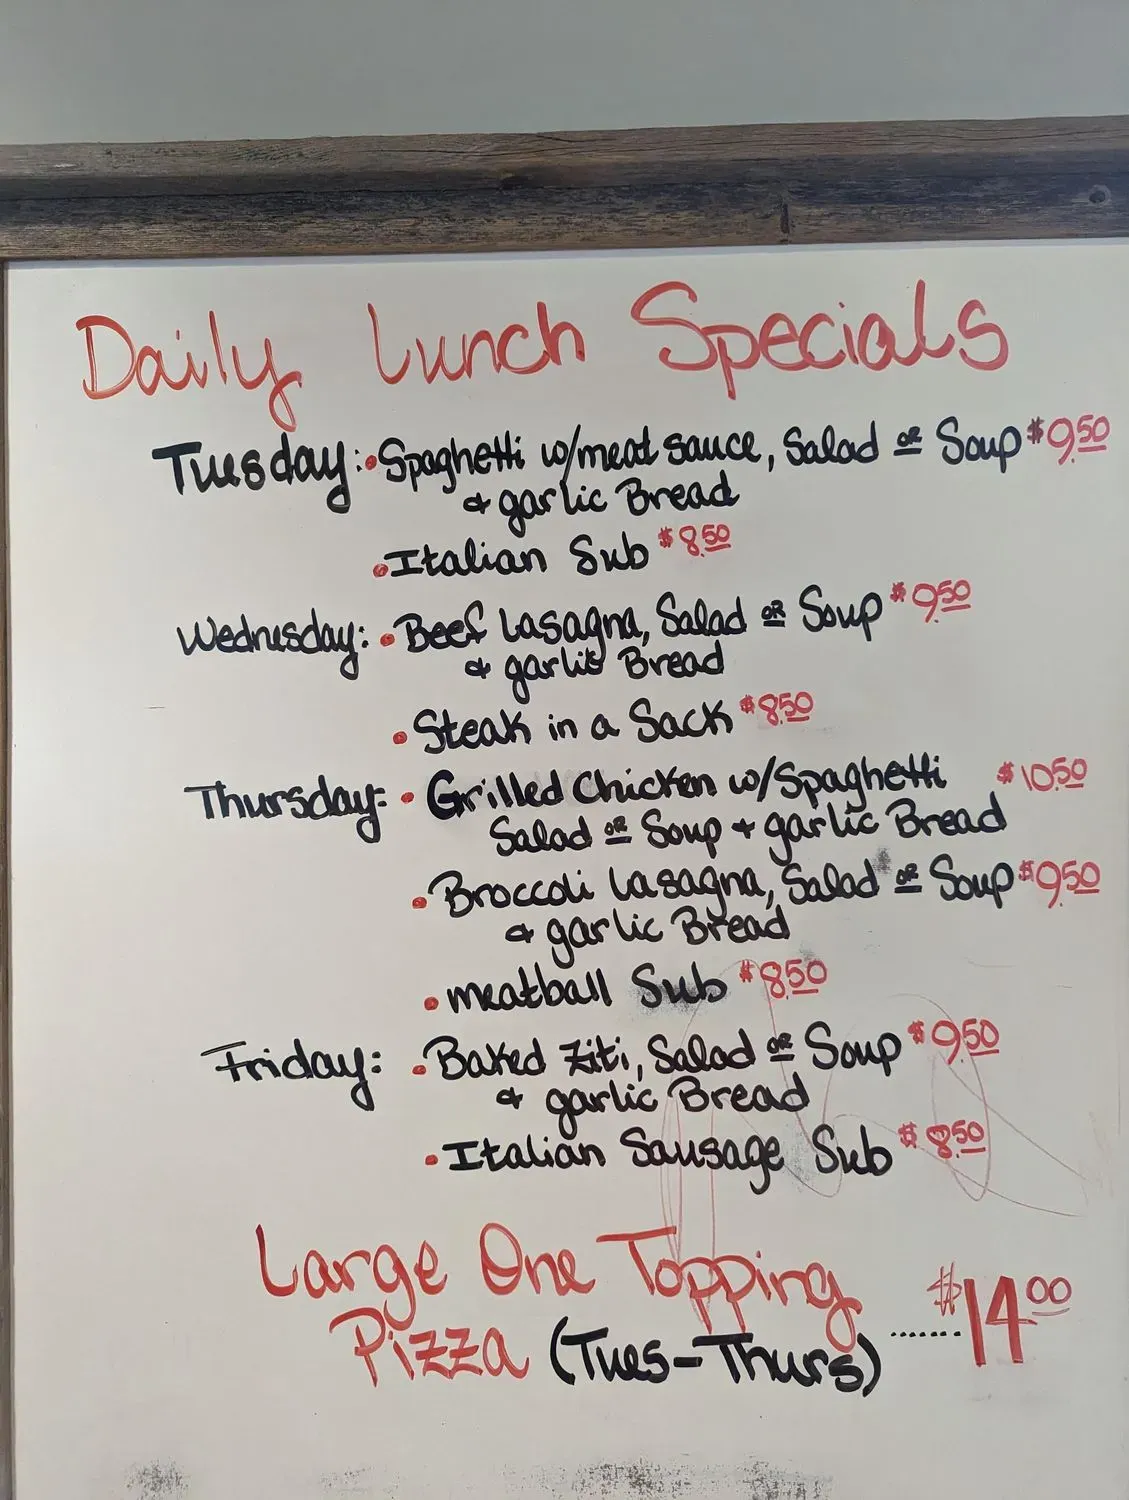 Daily Lunch Specials
Tuesday: • Spaghetti w/meat sauce, Salad OR Soup $9.50
& garlic Bread
• Italian Sub $8.50
Wednesday: • Beef Lasagna, Salad OR Soup $9.50
& garlic Bread
• Steak in a Sack $8.50
Thursday: • Grilled Chicken w/Spaghetti $10.50
Salad OR Soup & garlic Bread
• Broccoli Lasagna, Salad OR Soup $9.50
& garlic Bread
• meatball Sub $8.50
Friday: • Baked Ziti, Salad OR Soup $9.50
& garlic Bread
• Italian Sausage Sub $8.50
Large One Topping
Pizza (Tues-Thurs) ....... $14.00